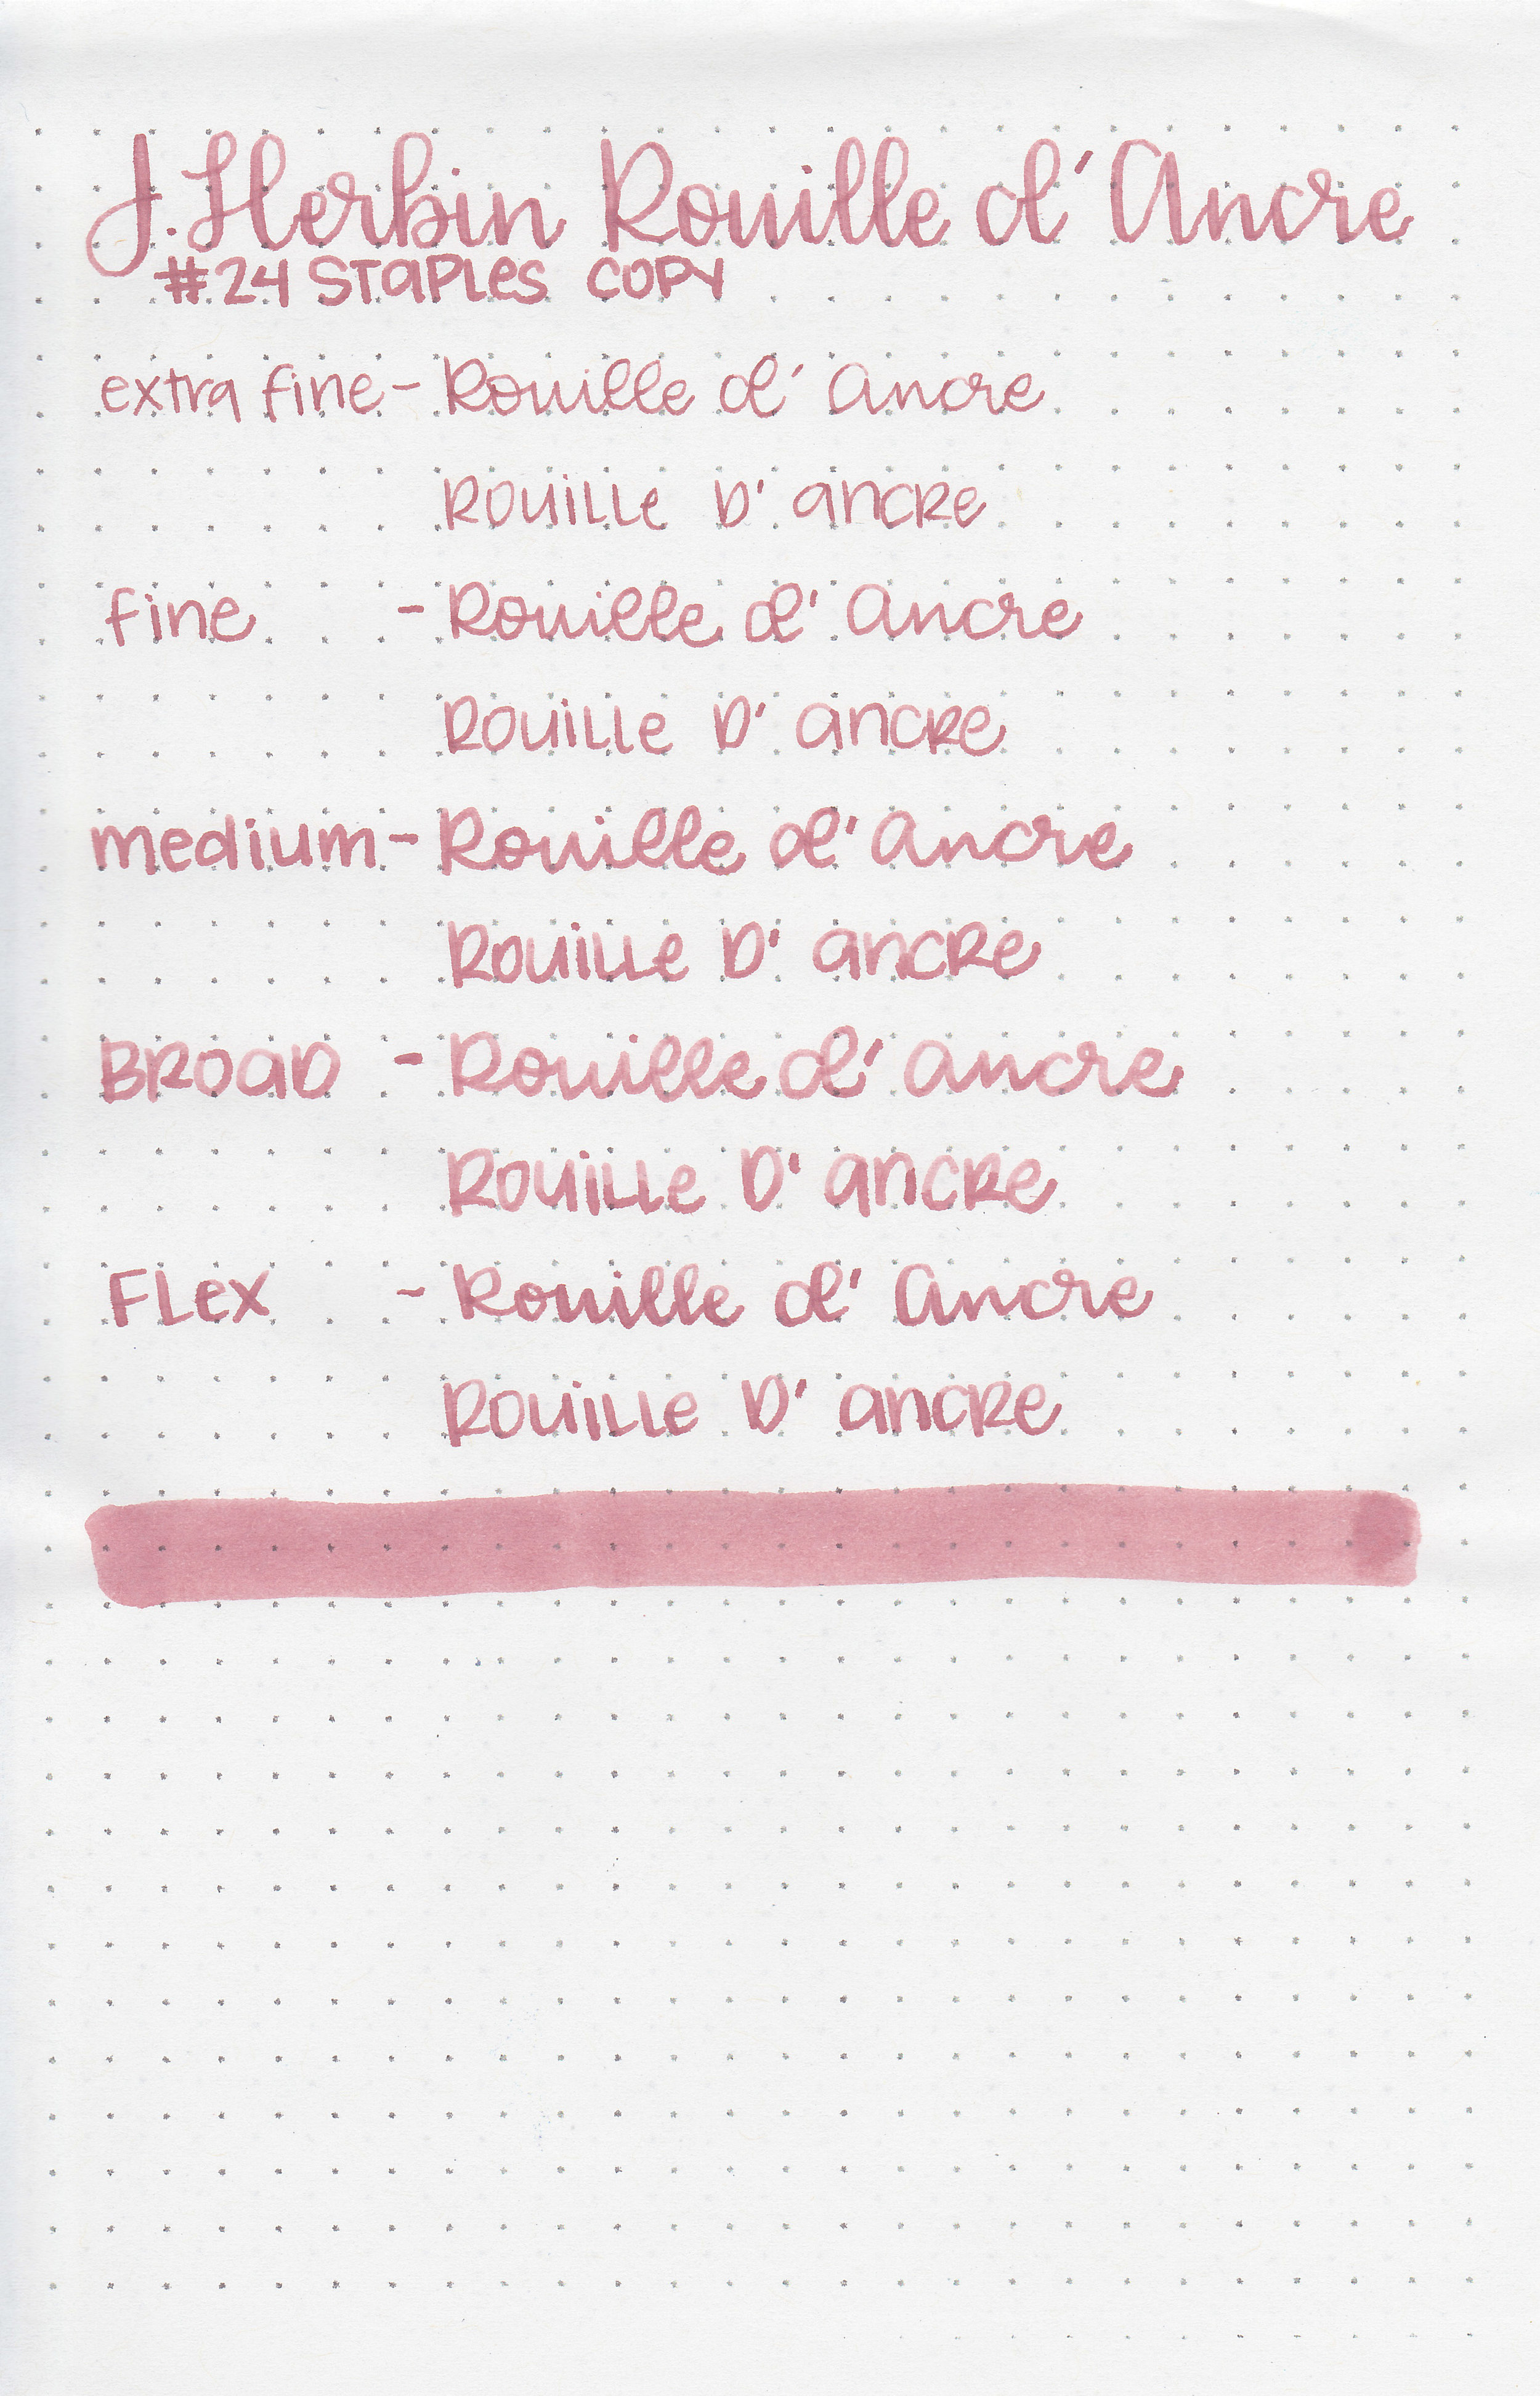 J. Herbin Rouille d'Ancre
#24 STaPLes COPY
extra fine - Rouille d' Ancre
ROUiLLe D' aNCRe
fine - Rouille d' Ancre
ROUiLLe D' aNCRe
medium - Rouille d' Ancre
ROUiLLe D' aNCRe
BROaD - Rouille d' Ancre
ROUiLLe D' aNCRe
FLex - Rouille d' Ancre
ROUiLLe D' aNCRe